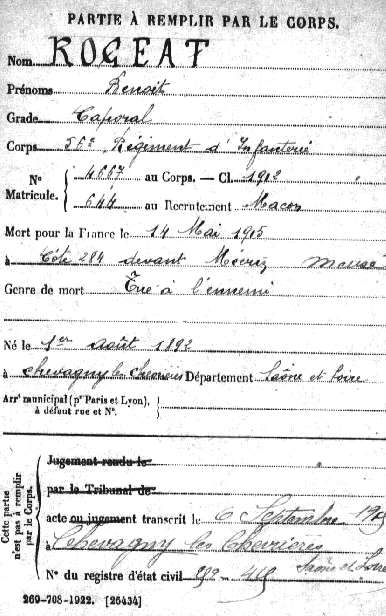 PARTIE À REMPLIR PAR LE CORPS.
Nom ROGEAT
Prénoms Benoit
Grade Caporal
Corps 56e Régiment d'Infanterie
N° Matricule. 4667 au Corps. — Cl. 1912
644 au Recrutement Macon
Mort pour la France le 14 Mai 1915
à Côte 284 devant
Genre de mort Tué à l'ennemi
Né le 1er août 1892
à Chevagny les Chevrières Département Saône et Loire
Arrt municipal (pr Paris et Lyon), à défaut rue et N°.
Cette partie n'est pas à remplir par le Corps.
Jugement rendu le
par le Tribunal de
acte ou jugement transcrit le 6 Septembre 1915
à Chevagny les Chevrières
Saône et Loire
N° du registre d'état civil
269-708-1922. [26434]